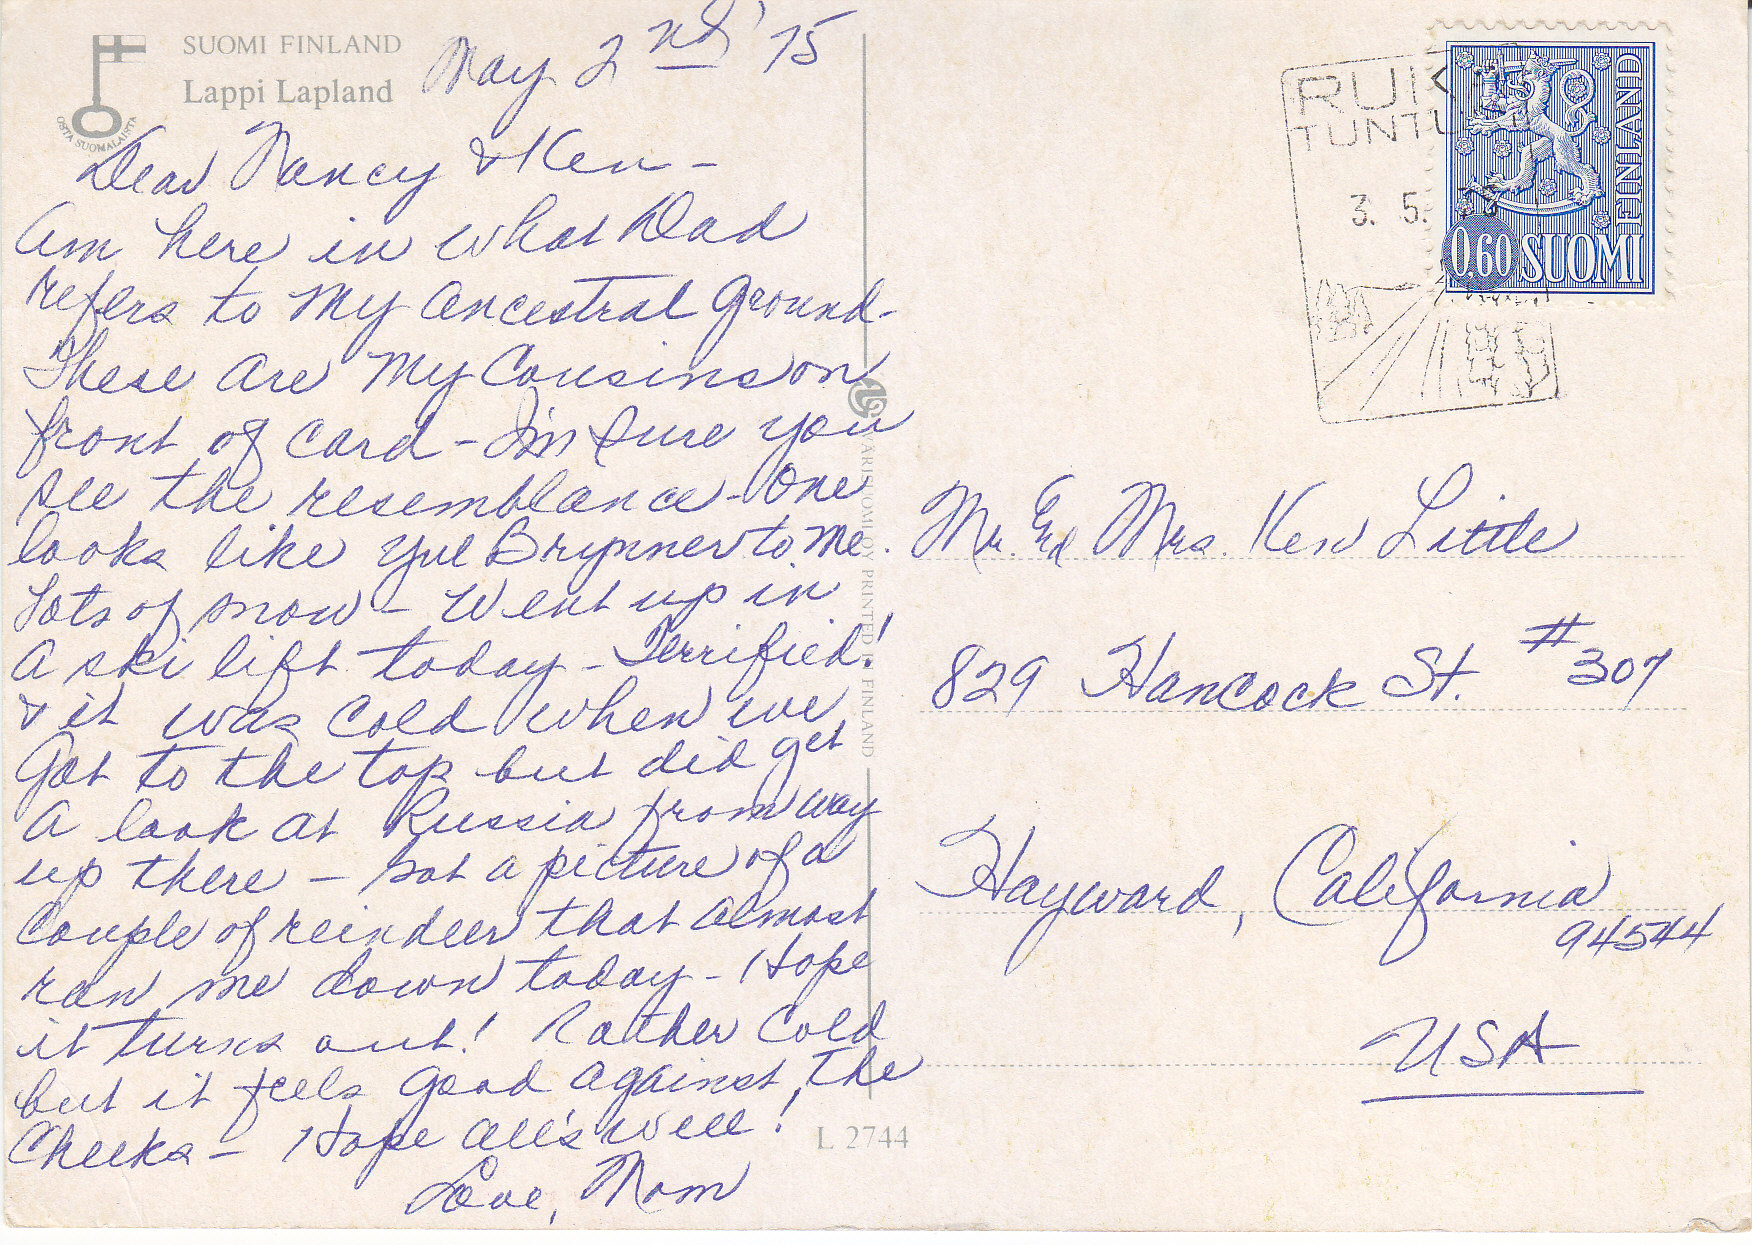 SUOMI FINLAND
Lappi Lapland
OSTA SUOMALAISTA
May 2nd '75
Dear Nancy & Ken -
Am here in what Dad
refers to my ancestral ground -
These are my cousins on
front of card - I'm sure you
see the resemblance - One
looks like Yul Brynner to me.
Lots of snow - Went up in
a ski lift today - Terrified!
& it was cold when we
got to the top but did get
a look at Russia from way
up there - Got a picture of a
couple of reindeer that almost
ran me down today - Hope
it turns out! Rather cold
but it feels good against the
cheeks - Hope all's well!
Love, Mom
OY PRINTED IN FINLAND
L 2744
TUNTU
3. 5.
FINLAND
0,60 SUOMI
Mr. and Mrs. Ken Little
829 Hancock St. #307
Hayward, California
94544
USA